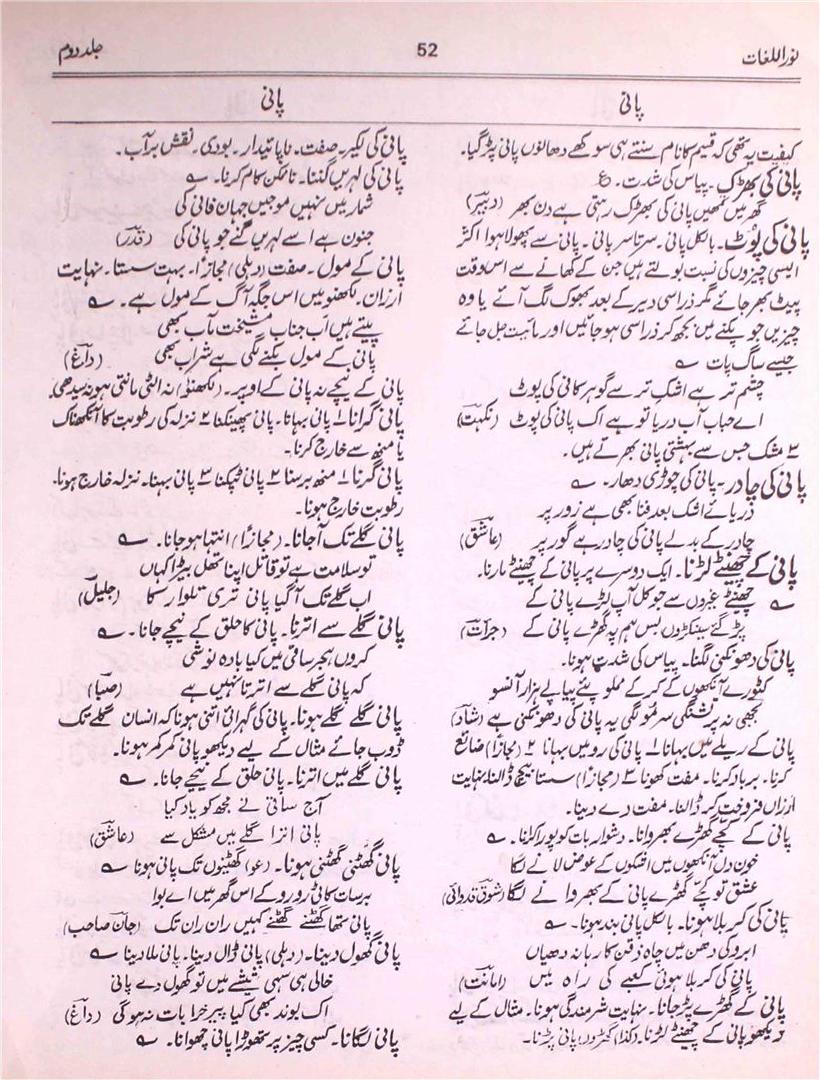 نوراللغات
52
جلد دوم
پانی
کیفیت یہ تھی کہ قیسم کا نام سنتے ہی سوکھے دھانوں پانی پڑ گیا۔
پانی کی بھڑک۔ پیاس کی شدت۔ ع
گھر میں تمھیں پانی کی بھڑک رہتی ہے دن بھر (دبیر)
پانی کی پوٹ۔ بالکل پانی۔ سرتاسر پانی۔ پانی سے پھولا ہوا اکثر
ایسی چیزوں کی نسبت بولتے ہیں جن کے کھانے سے اس وقت
پیٹ بھر جائے مگر ذراسی دیر کے بعد بھوک لگ آئے یا وہ
چیزیں جو پکنے میں بجھ کر ذراسی ہوجائیں اور مائیت جل جائے
جیسے ساگ پات
چشم تر ہے اشک تر سے گوہر کانی کی پوٹ
اے حباب آب دریا تو ہے اک پانی کی پوٹ (نکہت)
۲ مشک جس سے بہشتی پانی بھرتے ہیں۔
پانی کی چادر۔ پانی کی چوڑی دھار۔
دریائے اشک بعد فنا بھی ہے زور پر
چادر کے بدلے پانی کی چادر ہے گور پر (عاشق)
پانی کے چھینٹے لڑنا۔ ایک دوسرے پر پانی کے چھینٹے مارنا۔
چھینٹے غیروں سے جو کل آپ لڑے پانی کے
پڑ گئے سینکڑوں بس ہم پہ گھڑے پانی کے (جرات)
پانی کی دھونکنی لگنا۔ پیاس کی شدت ہونا۔
کٹورے آنکھوں کے کرکے مملو پئے پیالے ہزار آنسو
بجھی نہ پر تشنگی سرمو لگی یہ پانی کی دھونکنی ہے (شاد)
پانی کے ریلے میں بہانا ۱ پانی کی رو میں بہانا ۲ (مجازاً) ضائع
کرنا۔ برباد کرنا۔ مفت کھونا ۳ (مجازاً) سستا بیچ ڈالنا۔ نہایت
ارزاں فروخت کر ڈالنا۔ مفت دے دینا۔
پانی کے کچے گھڑے بھروانا۔ دشوار بات کو پورا کرنا۔
خون دل آنکھوں میں اشکوں کے عوض لانے لگا
عشق تو کچے گھڑے پانی کے بھروانے لگا (شوق قدوائی)
پانی کی کربلا ہونا۔ بالکل پانی بند ہونا۔
ابرو کی دھن میں چاہ ذقن کا رہا نہ دھیاں
پانی کی کربلا ہوئی کعبے کی راہ میں (امانت)
پانی کے گھڑے پڑجانا۔ نہایت شرمندگی ہونا۔ مثال کے لیے
دیکھو پانی کے چھینٹے لڑنا۔ (کذا) گھڑوں پانی پڑنا۔
پانی
پانی کی لکیر۔ صفت۔ ناپائیدار۔ بودی۔ نقش برآب۔
پانی کی لہریں گننا۔ ناممکن کام کرنا۔
شمار میں نہیں موجیں جہان فانی کی
جنون ہے اسے لہریں گنے جو پانی کی (قدر)
پانی کے مول۔ صفت (دہلی) مجازاً۔ بہت سستا۔ نہایت
ارزاں۔ لکھنؤ میں اس جگہ آگ کے مول ہے۔
پیتے ہیں اب جناب مشیخت مآب بھی
پانی کے مول بکنے لگی ہے شراب بھی (داغ)
پانی کے نیچے نہ پانی کے اوپر۔ (لکھنؤ) نہ الٹی مانتی ہو نہ سیدھی۔
پانی گرانا ۱ پانی بہانا۔ پانی پھینکنا ۲ نزلہ کی رطوبت کا آنکھ ناک
یا منھ سے خارج کرنا۔
پانی گرنا ۱ منھ برسنا ۲ پانی ٹپکنا ۳ پانی بہنا۔ نزلہ خارج ہونا۔
رطوبت خارج ہونا۔
پانی گلے تک آجانا۔ (مجازاً) انتہا ہوجانا۔
تو سلامت ہے تو قاتل اپنا تھل بیڑا کہاں
اب گلے تک آگیا پانی تری تلوار کا (جلیل)
پانی گلے سے اترنا۔ پانی کا حلق کے نیچے جانا۔
کروں ہجر ساقی میں کیا بادہ نوشی
کہ پانی گلے سے اترتا نہیں ہے (صبا)
پانی گلے گلے ہونا۔ پانی کی گہرائی اتنی ہونا کہ انسان گلے تک
ڈوب جائے مثال کے لیے دیکھو پانی کمر کمر ہونا۔
پانی گلے میں اترنا۔ پانی حلق کے نیچے جانا۔
آج ساقی نے مجھ کو یاد کیا
پانی اترا گلے میں مشکل سے (عاشق)
پانی گھٹنی گھٹنی ہونا۔ (عو) گھٹنوں تک پانی ہونا
برسات کاٹی رو رو کے اس گھر میں اے بوا
پانی تھا گھٹنے گھٹنے کہیں ران ران تک (جان صاحب)
پانی گھول دینا۔ (دہلی) پانی ڈال دینا۔ پانی ملا دینا
خالی ہی سہی شیشے میں تو گھول دے پانی
اک بوند بھی کیا پیر خرابات نہ ہوگی (داغ)
پانی لگانا۔ کسی چیز پر تھوڑا پانی چھوانا۔